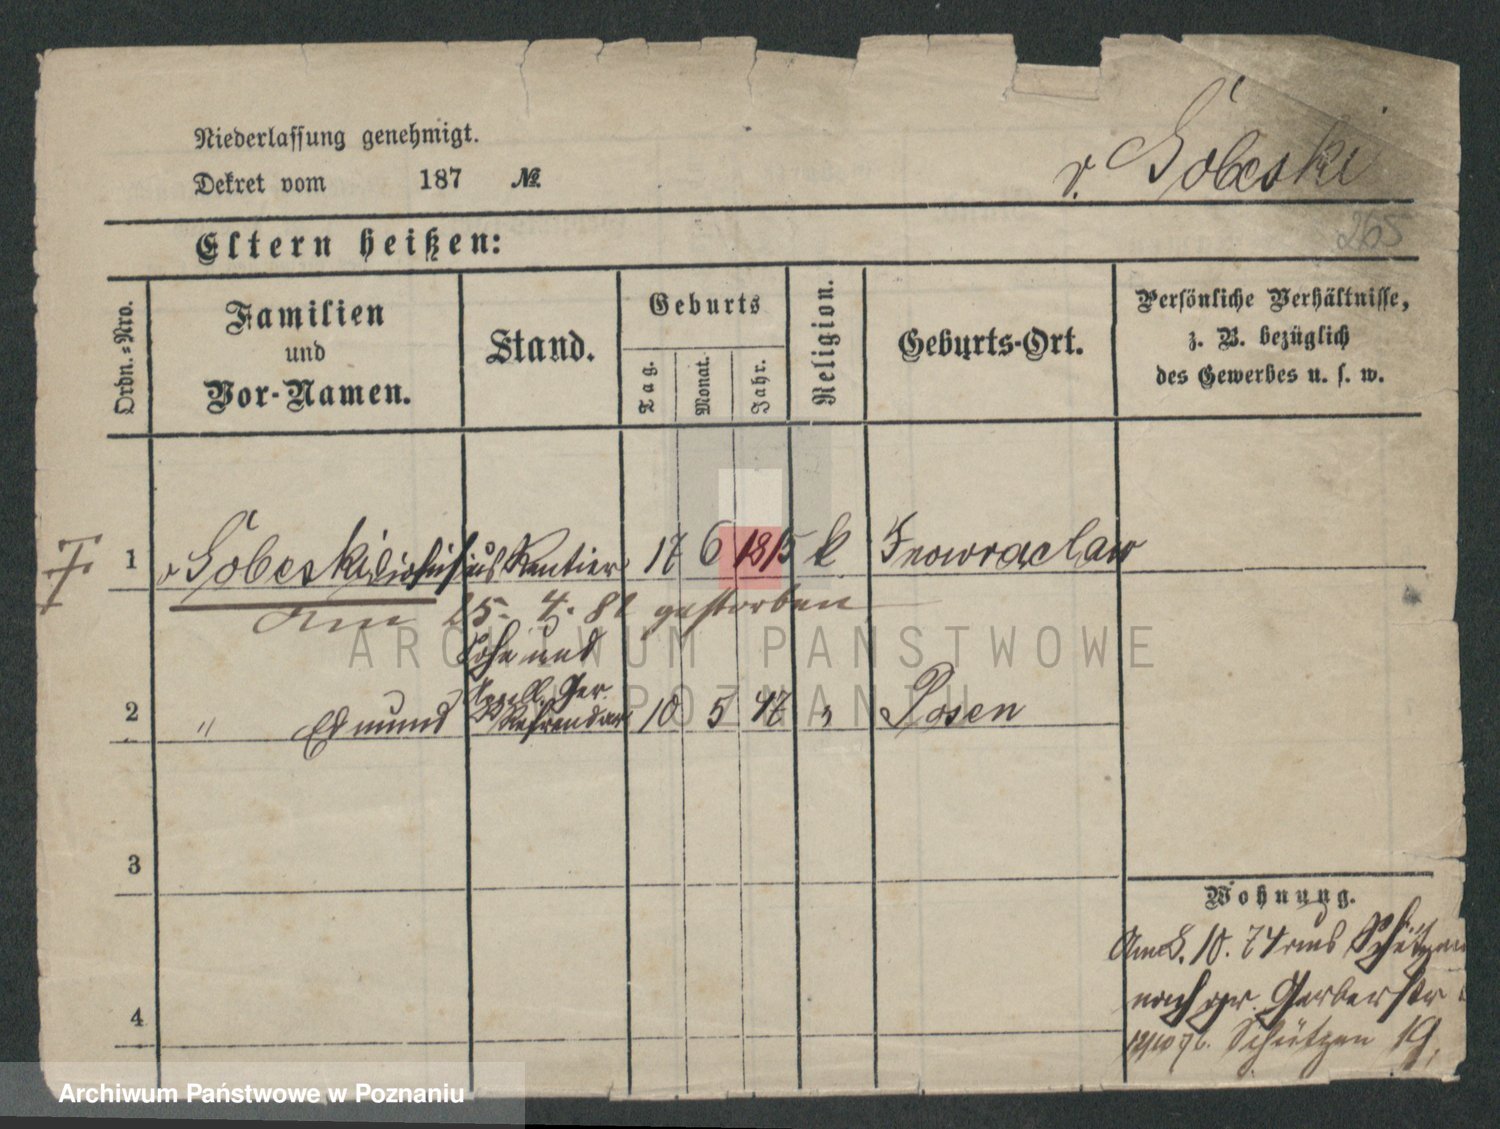 Niederlassung genehmigt.
v. Gobeski
Dekret vom 187 №
265
Eltern heißen:
Ordn.=Nro.
Familien
und
Vor-Namen.
Stand.
Geburts
Tag.
Monat.
Jahr.
Religion.
Geburts-Ort.
Persönliche Verhältnisse,
z. B. bezüglich
des Gewerbes u. s. w.
1 v Gobeski, Rentier 17 6 1815 k Inowraclaw
am 25. 4. 81 gestorben
Sohn und
Appell. Ger.
2 " Edmund Referendar 10 5 47 " Posen
3
Wohnung.
Am 8. 10. 74 aus Schützen
nach gr. Gerberstr
4
Schützen 19,
ARCHIWUM PAŃSTWOWE
W POZNANIU
Archiwum Państwowe w Poznaniu